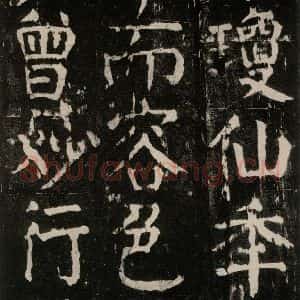 瓊仙秊
而容色
曾妙行
shufawang.CN